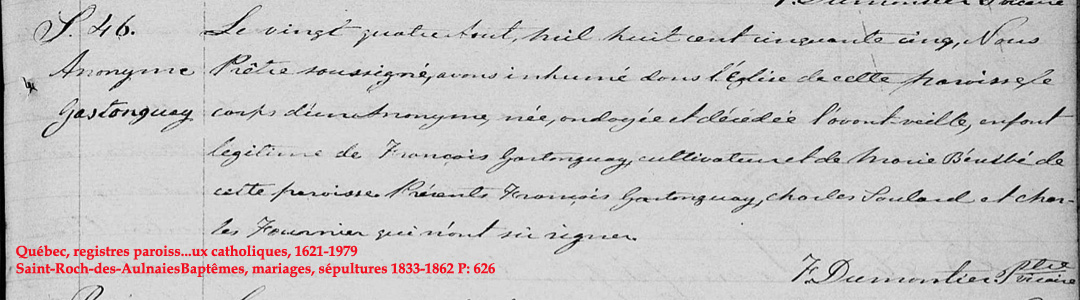 F. Dumontier Ptre Vicaire
S. 46.
Anonyme
Gastonguay
Le vingt quatre Aout, mil huit cent cinquante cinq, Nous
Prêtre soussigné, avons inhumé dans l'Église de cette paroisse, le
corps d'une Anonyme, née, ondoyée et décédée l'avant-veille, enfant
legitime de François Gastonguay, cultivateur et de Marie Bérubé de
cette paroisse. Présents François Gastonguay, Charles Soulard et Char-
les Fournier qui n'ont su signer.
F. Dumontier Ptre
Vicaire
Québec, registres paroiss...ux catholiques, 1621-1979
Saint-Roch-des-AulnaiesBaptêmes, mariages, sépultures 1833-1862 P: 626